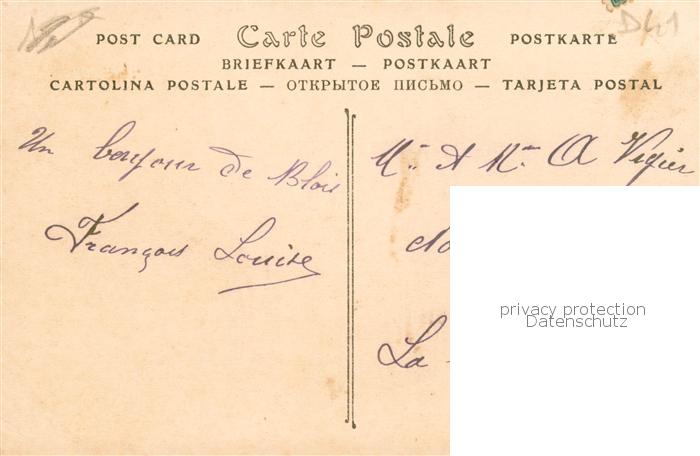 D41
POST CARD Carte Postale POSTKARTE
BRIEFKAART — POSTKAART
CARTOLINA POSTALE — ОТКРЫТОЕ ПИСЬМО — TARJETA POSTAL
Un bonjour de Blois
François Louise
Mr. et Me. A Vigier
La
privacy protection
Datenschutz